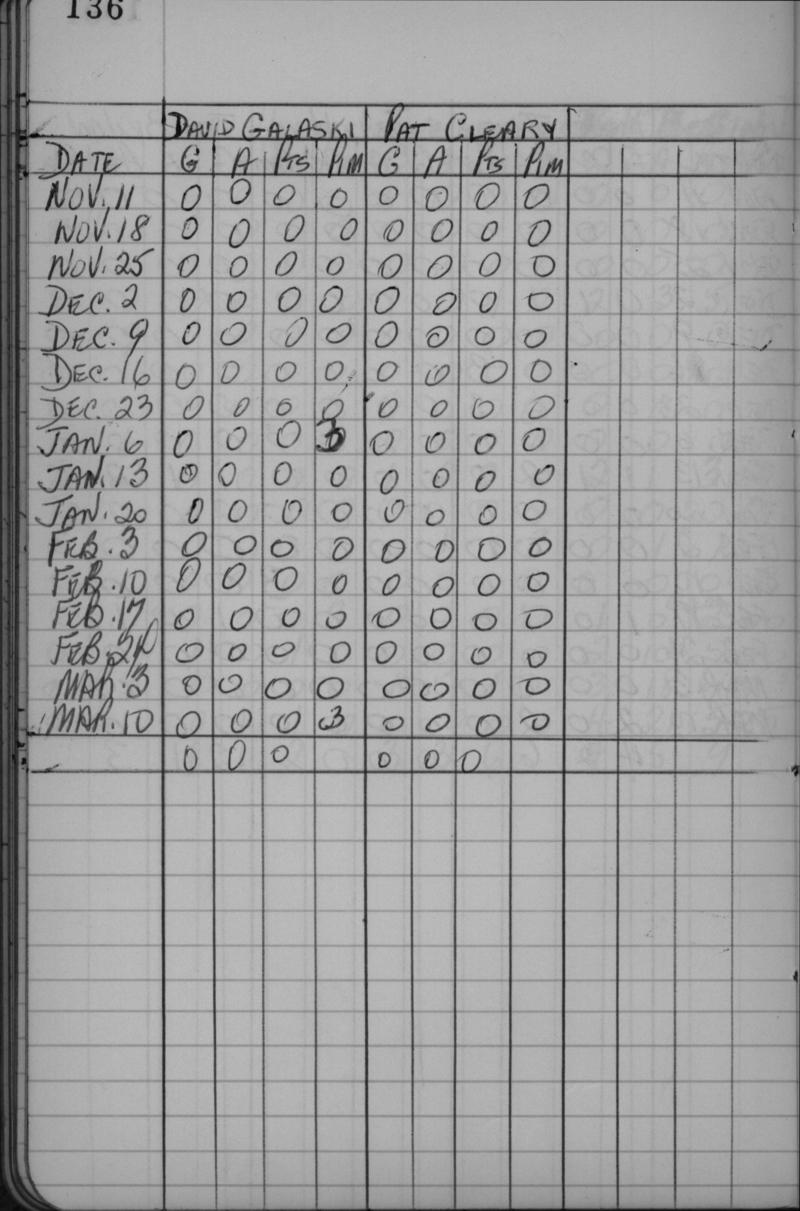 136
DAVID GALASKI PAT CLEARY
DATE G A PTS PIM G A PTS PIM
NOV. 11 0 0 0 0 0 0 0 0
NOV. 18 0 0 0 0 0 0 0 0
NOV. 25 0 0 0 0 0 0 0 0
DEC. 2 0 0 0 0 0 0 0 0
DEC. 9 0 0 0 0 0 0 0 0
DEC. 16 0 0 0 0 0 0 0 0
DEC. 23 0 0 0 0 0 0 0 0
JAN. 6 0 0 0 3 0 0 0 0
JAN. 13 0 0 0 0 0 0 0 0
JAN. 20 0 0 0 0 0 0 0 0
FEB. 3 0 0 0 0 0 0 0 0
FEB. 10 0 0 0 0 0 0 0 0
FEB. 17 0 0 0 0 0 0 0 0
FEB. 24 0 0 0 0 0 0 0 0
MAR. 3 0 0 0 0 0 0 0 0
MAR. 10 0 0 0 3 0 0 0 0
0 0 0 0 0 0